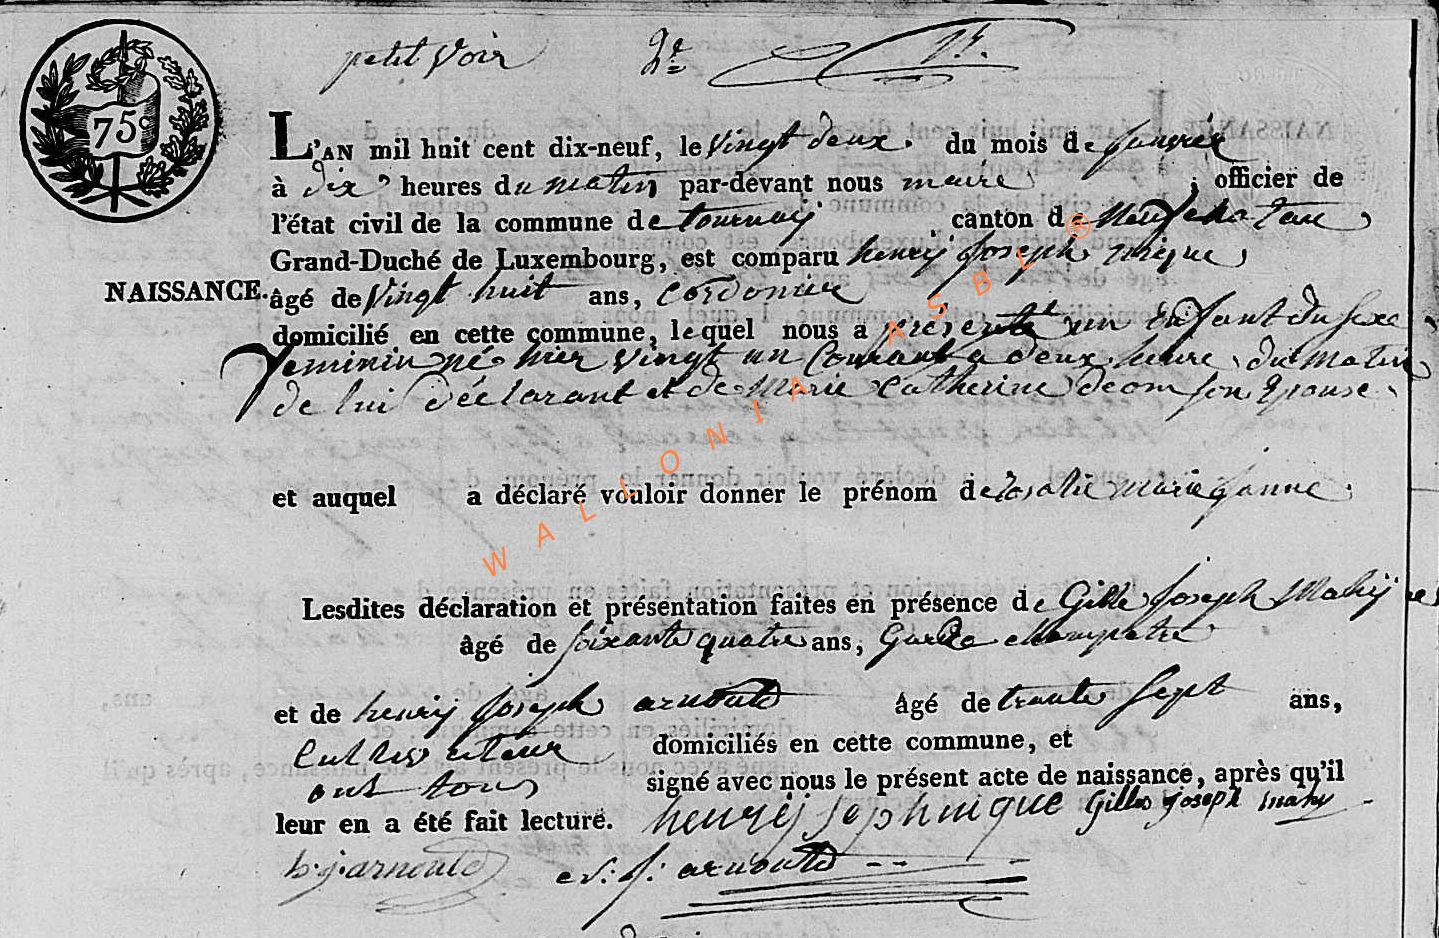 petit Voir 2e
75c
L'AN mil huit cent dix-neuf, le Vingt deux. du mois de Janvier
à dix heures du matin par-devant nous maire , officier de
l'état civil de la commune de tournay canton de Neufchatau
Grand-Duché de Luxembourg, est comparu henry Joseph nique
NAISSANCE. âgé de Vingt huit ans, Cordonier
domicilié en cette commune, lequel nous a présenté un Enfant du sexe
feminin né hier vingt un Courant a deux heure du matin
de lui déclarant et de Marie Catherine deom son Epouse
et auquel a déclaré vouloir donner le prénom de rosalie marie janne
Lesdites déclaration et présentation faites en présence de Gille Joseph Mahy
âgé de soixante quatre ans, Garde champetre
et de henry Joseph arnould âgé de trente Sept ans,
Cultivateur domiciliés en cette commune, et
ont tous signé avec nous le présent acte de naissance, après qu'il
leur en a été fait lecture. henrij joseph nique Gilles joseph mahy
h.j. arnould J. arnould
WALLONIA ASBL ®